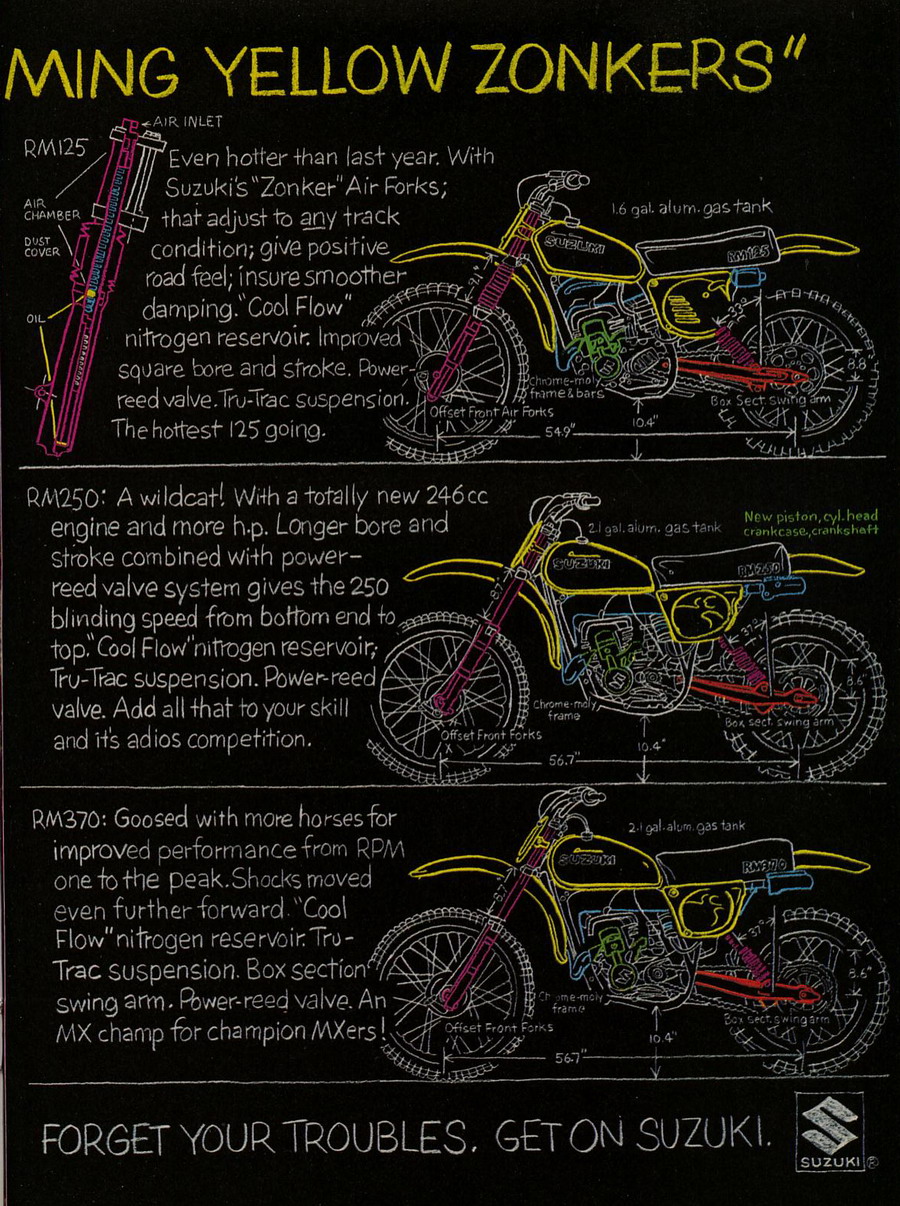 MING YELLOW ZONKERS"
RM125
AIR INLET
AIR
CHAMBER
DUST
COVER
OIL
Even hotter than last year. With
Suzuki's "Zonker" Air Forks;
that adjust to any track
condition; give positive
road feel; insure smoother
damping. "Cool Flow"
nitrogen reservoir. Improved
square bore and stroke. Power-
reed valve. Tru-Trac suspension.
The hottest 125 going.
1.6 gal. alum. gas tank
SUZUKI
RM125
8.8"
Chrome-moly
frame & bars
Box Sect. swing arm
Offset Front Air Forks
54.9"
10.4"
RM250: A wildcat! With a totally new 246cc
engine and more h.p. Longer bore and
stroke combined with power-
reed valve system gives the 250
blinding speed from bottom end to
top. "Cool Flow" nitrogen reservoir;
Tru-Trac suspension. Power-reed
valve. Add all that to your skill
and it's adios competition.
2.1 gal. alum. gas tank
New piston, cyl. head
crankcase, crankshaft
SUZUKI
RM250
37°
8.6"
Chrome-moly
frame
Box sect. swing arm
Offset Front Forks
10.4"
56.7"
RM370: Goosed with more horses for
improved performance from RPM
one to the peak. Shocks moved
even further forward. "Cool
Flow" nitrogen reservoir. Tru-
Trac suspension. Box section
swing arm. Power-reed valve. An
MX champ for champion MXers!
2.1 gal. alum. gas tank
SUZUKI
RM370
37°
8.6"
Chrome-moly
frame
Box sect. swing arm
Offset Front Forks
10.4"
56.7"
FORGET YOUR TROUBLES. GET ON SUZUKI.
SUZUKI ®